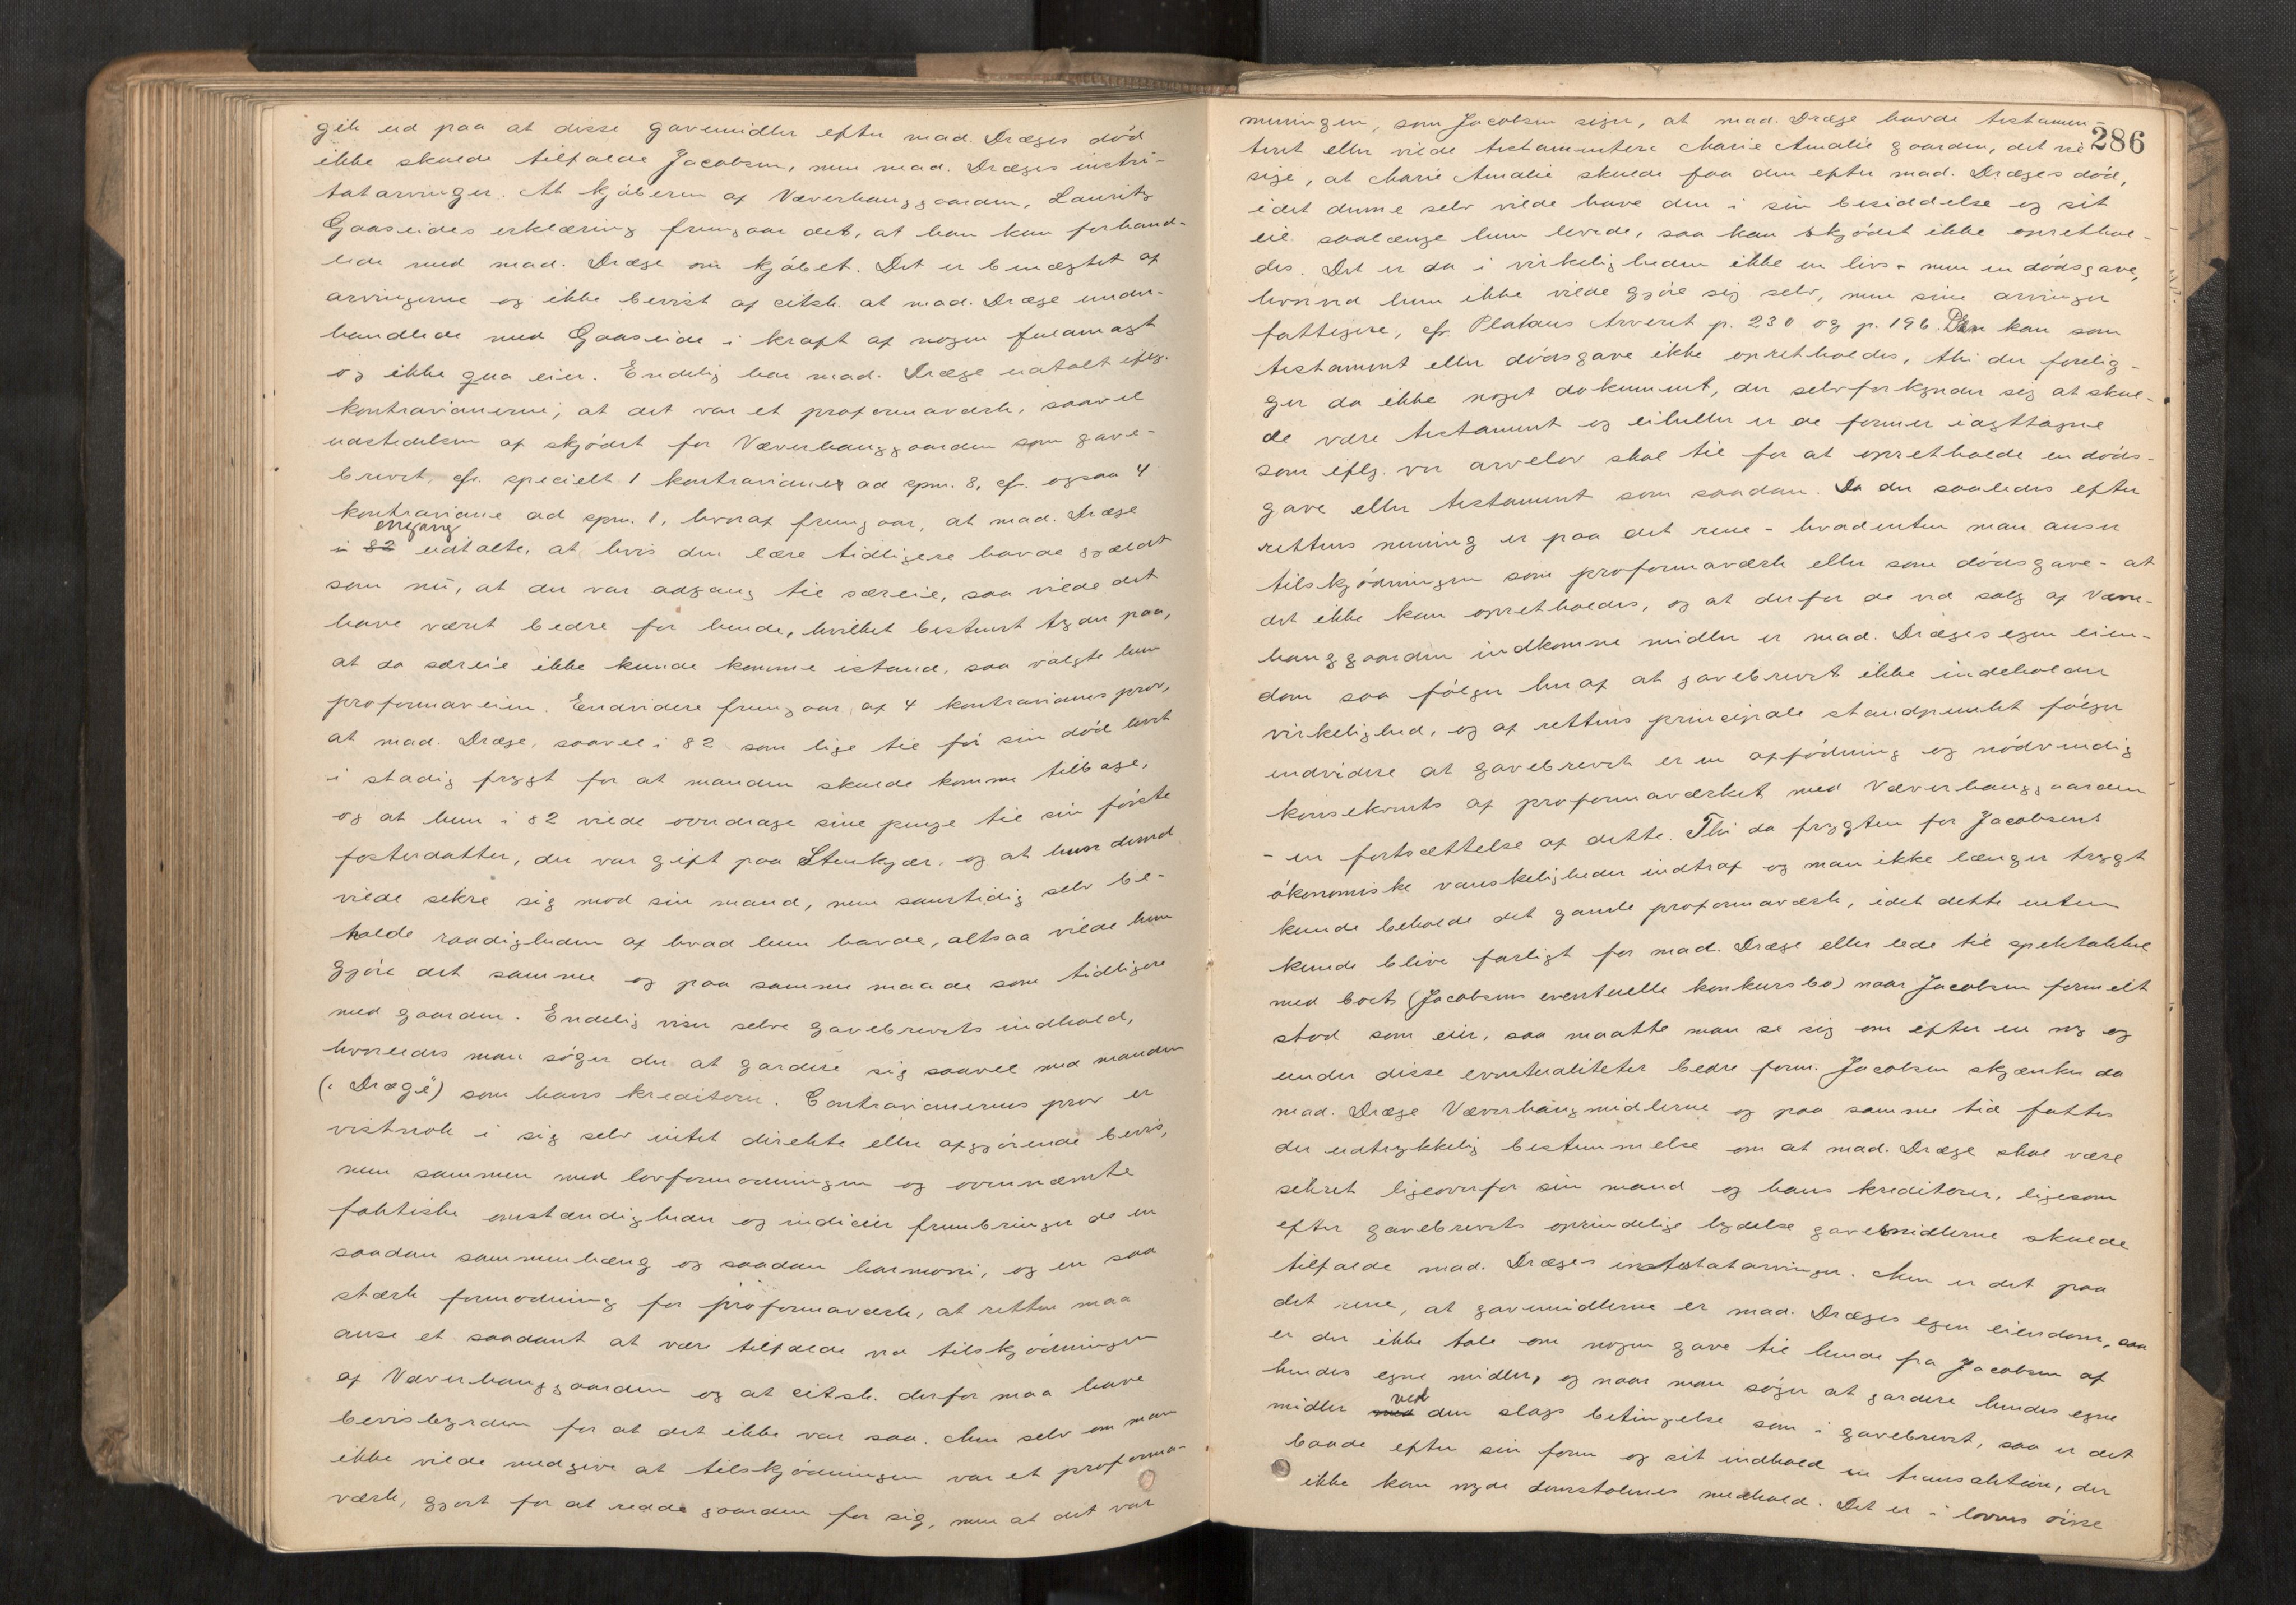 gik ud paa at disse gavemidler efter mad. Dræges död
ikke skulde tilfalde Jacobsen, men mad. Dræges intesta-
tatarvinger. At kjöberen af Væverhauggaarden, Lauritz
Gaaseides erklæring fremgaar det, at han kun forhand-
lede med mad. Dræge om kjöbet. Det er benægtet af
arvingerne og ikke bevist af citsk. at mad. Dræge under-
handlede med Gaaseide i kraft af nogen fuldmagt
og ikke qua eier. Endelig har mad. Dræge udtalt iflg.
kontravianerne, at det var et proformaværk, saavel
udstedelsen af skjödet for Væverhauggaarden som gave-
brevet, cfr. specielt 1 kontravianer ad spm. 8, cfr. ogsaa 4
kontraviane ad spm. 1, hvoraf fremgaar, at mad. Dræge
engang
i 82 udtalte, at hvis den lære tidligere havde gjældt
som nu, at der var adgang til særeie, saa vilde det
have været bedre for hende, hvilket bestemt tyder paa,
at da særeie ikke kunde komme istand, saa valgte hun
proformaveien. Endvidere fremgaar af 4 kontravianes prov,
at mad. Dræge, saavel i 82 som lige til för sin död levet
i stadig frygt for at manden skulde komme tilbage,
og at hun i 82 vilde overdrage sine penge til sin förste
fosterdatter, der var gift paa Stenkjær, og at hun derved
vilde sikre sig mod sin mand, men samtidig selv be-
holde raadigheden af hvad hun havde, altsaa vilde hun
gjöre det samme og paa samme maade som tidligere
med gaarden. Endelig viser selve gavebrevets indhold,
hvorledes man söger der at gardere sig saavel mod manden
("Dræge") som hans kreditorer. Contravianernes prov er
vistnok i sig selv intet direkte eller afgjörende bevis,
men sammen med lovformodningen og ovennævnte
faktiske omstændigheder og indicier frembringer de en
saadan sammenhæng og saadan harmoni, og en saa
stærk formodning for proformaværk, at retten maa
anse et saadant at være tilfælde ved tilskjödningen
af Væverhauggaarden og at citsk. derfor maa have
bevisbyrden for at det ikke var saa. Men selv om man
ikke vilde medgive at tilskjödningen var et proforma-
værk, gjort for at redde gaarden for sig, men at det var
286
meningen, som Jacobsen siger, at mad. Dræge havde testamen-
teret eller vilde testamentere Marie Amalie gaarden, det vil
sige, at Marie Amalie skulde faa den efter mad. Dræges död,
idet denne selv vilde have den i sin besiddelse og sit
eie saalænge hun levede, saa kan skjödet ikke oprethol-
des. Det er da i virkeligheden ikke en livs- men en dödsgave,
hvorved hun ikke vilde gjöre sig selv, men sine arvinger
fattigere, cfr. Platous Arveret p. 230 og p. 196. Den kan som
testament eller dödsgave ikke opretholdes, thi der forelig-
ger da ikke noget dokument, der selv forkynder sig at skul-
de være testament og eiheller er de former iagttagne
som iflg. vor arvelov skal til for at opretholde en döds-
gave eller testament som saadan. Da der saaledes efter
rettens mening er paa det rene - hvadenten man anser
tilskjödningen som proformaværk eller som dödsgave - at
det ikke kan opretholdes, og at derfor de ved salg af Væver-
hauggaarden indkomne midler er mad. Dræges egen eien-
dom saa fölger heraf at gavebrevet ikke indeholder
virkelighed, og af rettens principale standpunkt fölger
endvidere at gavebrevet er en affödning og nödvendig
konsekvents af proformaværket med Væverhauggaarden
- en fortsættelse af dette. Thi da frygten for Jacobsens
ökonomiske vanskeligheder indtraf og man ikke længer trygt
kunde beholde det gamle proformaværk, idet dette enten
kunde blive farligt for mad. Dræge eller lede til spektakkel
med boet (Jacobsens eventuelle konkursbo) naar Jacobsen formelt
stod som eier, saa maatte man se sig om efter en ny og
under disse eventualiteter bedre form. Jacobsen skjænker da
mad. Dræge Væverhaugmidlerne og paa samme tid fattes
der udtrykkelig bestemmelse om at mad. Dræge skal være
sikret ligeoverfor sin mand og hans kreditorer, ligesom
efter gavebrevets oprindelige lydelse gavemidlerne skulde
tilfalde mad. Dræges intestatarvinger. Men er det paa
det rene, at gavemidlerne er mad. Dræges egen eiendom, saa
er der ikke tale om nogen gave til hende fra Jacobsen af
hendes egne midler, og naar man söger at gardere hendes egne
midler med ved den slags betingelse som i gavebrevet, saa er det
baade efter sin form og sit indhold en transaktion, der
ikke kan nyde domstolenes medhold. Det er i lovens öine